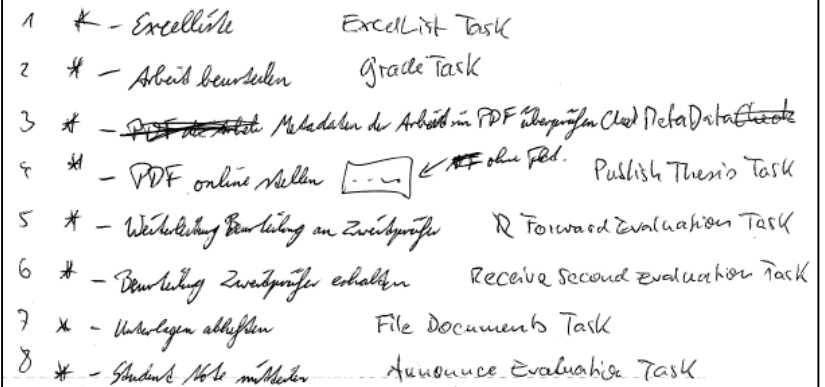 1 * - Excelliste ExcelList Task
2 * - Arbeit beurteilen Grade Task
3 * - Metadaten der Arbeit im PDF überprüfen Check MetaData
4 * - PDF online stellen ohne Publish Thesis Task
5 * - Weiterleitung Beurteilung an Zweitprüfer Forward Evaluation Task
6 * - Beurteilung Zweitprüfer erhalten Receive Second Evaluation Task
7 * - Unterlagen abheften File Documents Task
8 * - Student Note mitteilen Announce Evaluation Task